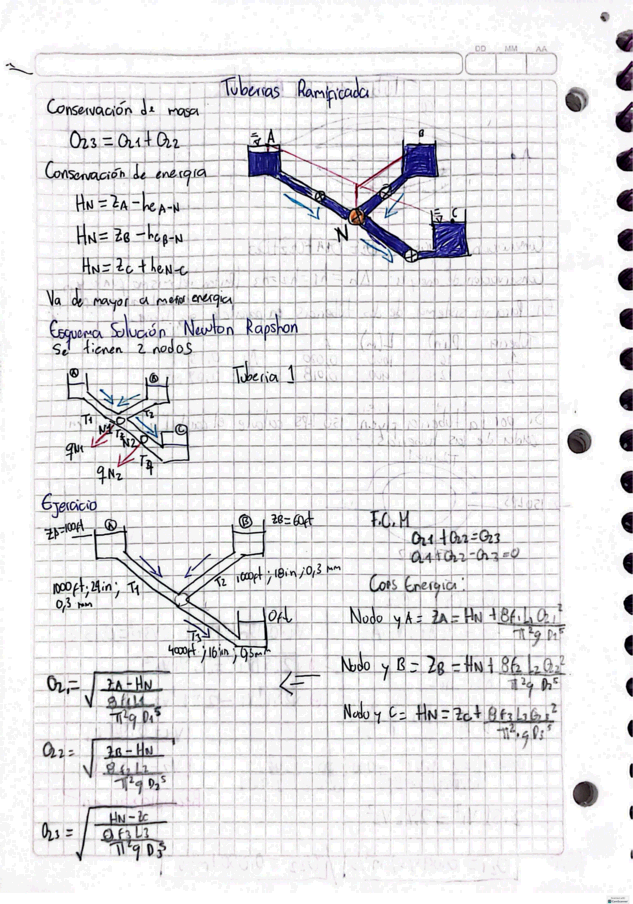 DD MM AA
Tuberias Ramificada
Conservación de masa
Q23 = Q21 + Q22
Conservación de energía
HN = ZA - heA-N
HN = ZB - hcB-N
HN = Zc + heN-C
Va de mayor a menor energia
A
B
C
N
Esquema Solución Newton Rapshon
Se tienen 2 nodos
Tuberia 1
A
B
C
T1
T2
N1
T3
N2
T4
qN1
qN2
Ejercicio
ZA=100ft
A
B
ZB=60ft
1000ft; 24in;
0,3 mm
T1
T2
1000ft; 18in; 0,3 mm
0ft
T3
4000ft; 16in; 0,3mm
F.C.M
Q21 + Q22 = Q23
Q21 + Q22 - Q23 = 0
Cons Energia:
Nodo y A = ZA = HN + 8f1 L1 Q21² / π²g D1⁵
Nodo y B = ZB = HN + 8f2 L2 Q22² / π²g D2⁵
Nodo y C = HN = Zc + 8f3 L3 Q23² / π²·g D3⁵
⇐
Q21 = √ ZA - HN / 8f1L1 / π²g D1⁵
Q22 = √ ZB - HN / 8f2 L2 / π²g D2⁵
Q23 = √ HN - Zc / 8f3 L3 / π²g D3⁵